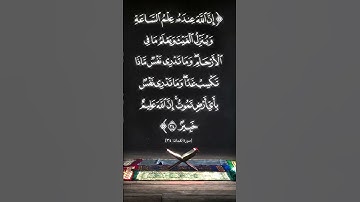 ﴿ إِنَّ اللَّهَ عِندَهُ عِلْمُ السَّاعَةِ
وَيُنَزِّلُ الْغَيْثَ وَيَعْلَمُ مَا فِي
الْأَرْحَامِ ۖ وَمَا تَدْرِي نَفْسٌ مَّاذَا
تَكْسِبُ غَدًا ۖ وَمَا تَدْرِي نَفْسٌ
بِأَيِّ أَرْضٍ تَمُوتُ ۚ إِنَّ اللَّهَ عَلِيمٌ
خَبِيرٌ ﴾
[سورة لقمان: ٣٤]